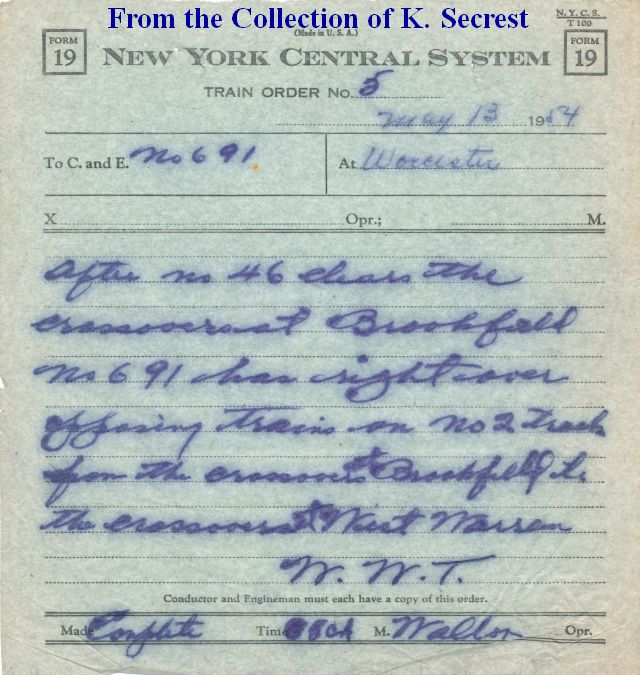 From the Collection of K. Secrest
N. Y. C. S.
T 100
(Made in U. S. A.)
FORM 19
NEW YORK CENTRAL SYSTEM
FORM 19
TRAIN ORDER No. 5
May 13 1954
To C. and E. No 691
At Worcester
X Opr.; M.
After no 46 clears the
crossovers at Brookfield
No 691 has right over
opposing trains on no 2 track
from the crossovers at Brookfield to
the crossovers at West Warren
W. W. T.
Conductor and Engineman must each have a copy of this order.
Made Complete Time M. Opr.